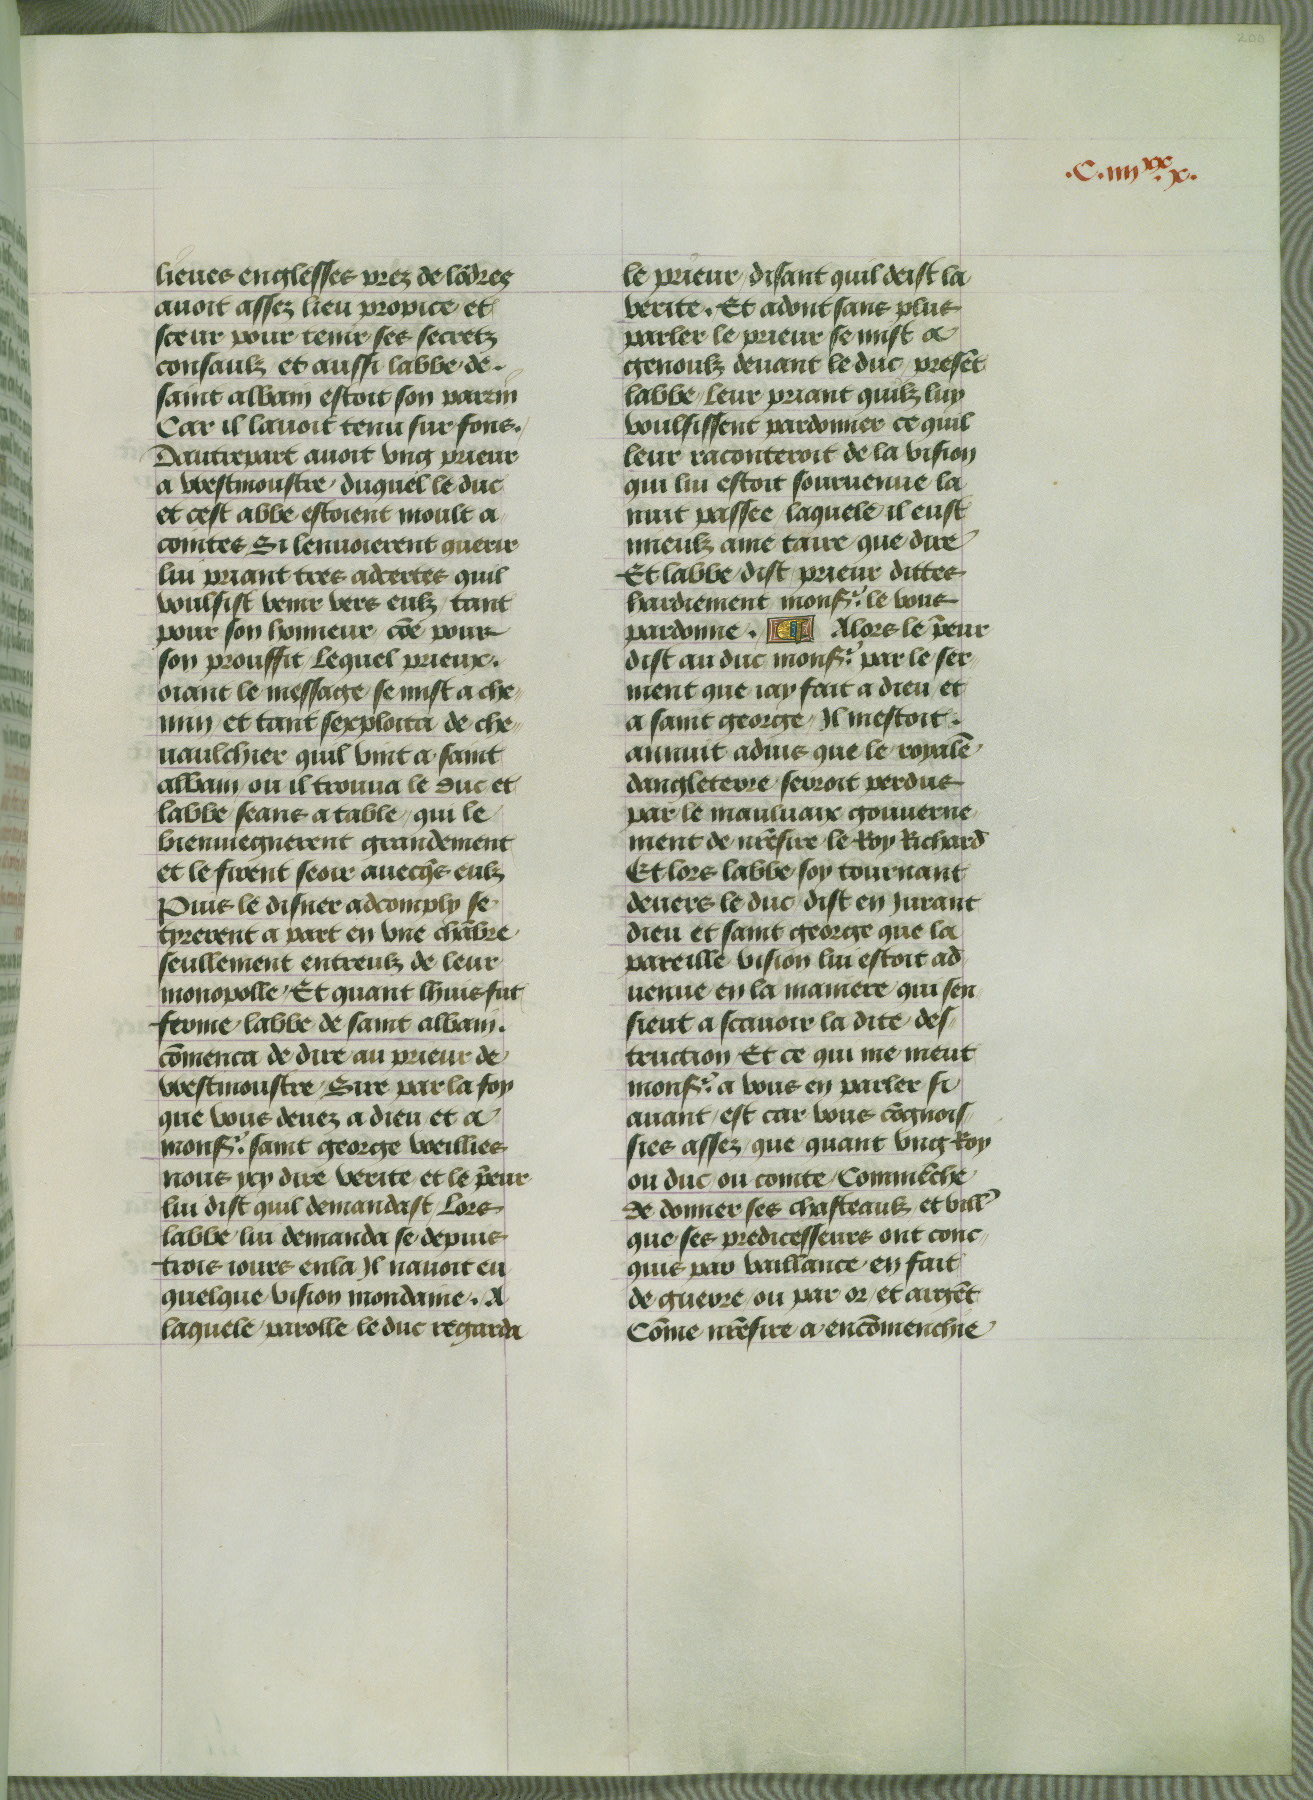 200
.C.iiijxx.x.
lieues englesses prez de lõdres
auoit assez lieu propice et
sceur pour tenir ses secretz
consaulz et aussi labbe de
saint albain estoit son parrin
Car il lauoit tenu sur fons.
Dautrepart auoit vng prieur
a westmoustre duquel le duc
et cest abbe estoient moult a
cointes Si lenuoierent querir
lui priant tres adcertes quil
voulsist venir vers eulz tant
pour son honneur cõe pour
son prouffit Lequel prieux.
oiant le message se mist a che
min et tant sexploita de che
uaulchier quil vint a saint
albain ou il trouua le duc et
labbe seans a table qui le
bienuiegnerent grandement
et le firent seoir auecq̃s eulz
Puis le disner adcomply se
tyrerent a part en vne chãbre
seullement entreulz de leur
monopolle Et quant lhuis fut
ferme labbe de saint albain.
cõmenca de dire au prieur de
westmoustre Sire par la foy
que vous deuez a dieu et a
monsr̃. saint george vveillies
nous icy dire verite et le p̃eur
lui dist quil demandast Lors
labbe lui demanda se depuis
trois iours enla Il nauoit eu
quelque vision mondaine. A
laquele parolle le duc regarda
le prieur disant quil deist la
verite. Et adont sans plus
parler le prieur se mist a
genoulz deuant le duc presẽt
labbe leur priant quilz luy
voulsissent pardonner ce quil
leur raconteroit de la vision
qui lui estoit souruenue la
nuit passee laquele il eust
mieulz ame taire que dire
Et labbe dist prieur dittes
hardiement monsr̃. le vous
pardonne. Alors le p̃eur
dist au duc monsr̃. par le ser
ment que iay fait a dieu et
a saint george Il mestoit.
annuit aduis que le royalẽ
dangleterre seroit perdus
par le mauluaix gouuerne
ment de nr̃esire le Roy Richard
Et lors labbe soy tournant
deuers le duc dist en jurant
dieu et saint george que la
pareille vision lui estoit ad
uenue en la maniere qui sen
sieut a scauoir la dite des
truction Et ce qui me meut
monsr̃. a vous en parler si
auant est car vous cõgnois
sies assez que quant vng Roy
ou duc ou comte Commẽche
de donner ses chasteaulz et vill'
que ses predicesseurs ont conc
quis par vaillance en fait
de guerre ou par or et argẽt
Cõme nr̃esire a encõmenchie